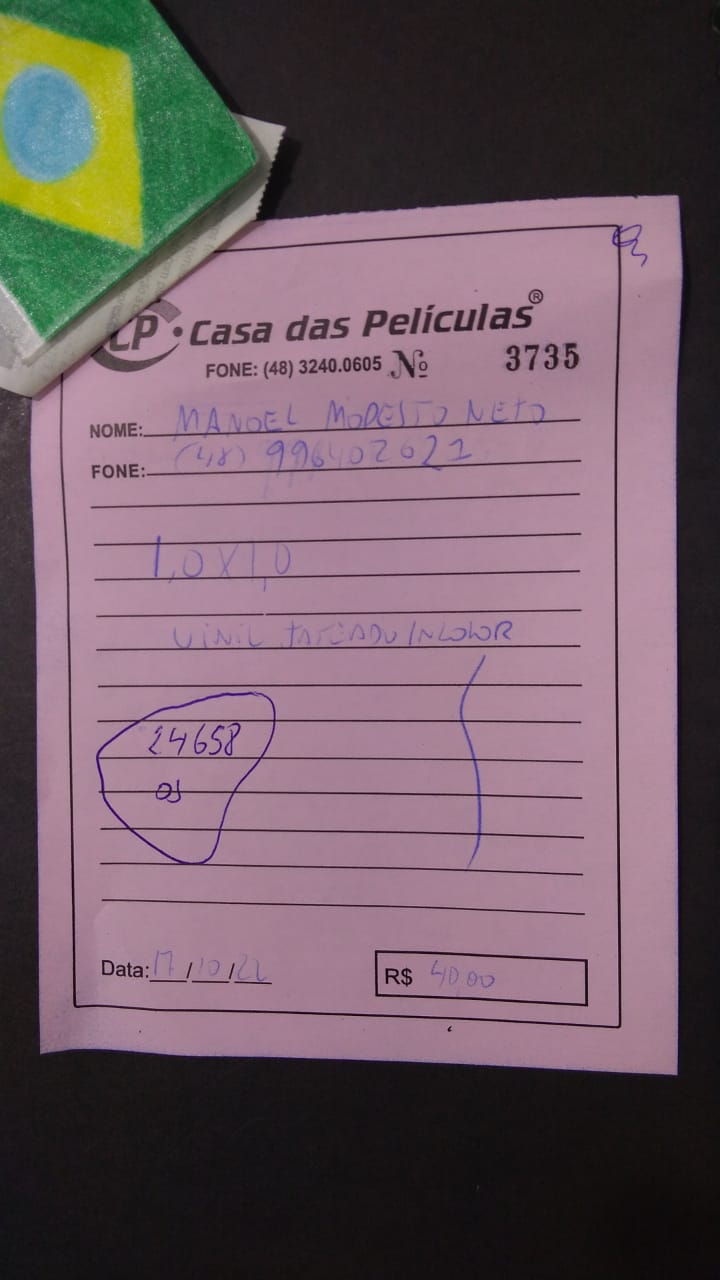 CP · Casa das Películas®
FONE: (48) 3240.0605 Nº 3735
NOME: MANOEL MODESTO NETO
FONE: (48) 996402621
1,0 X 1,0
VINIL JATEADO INCOLOR
24658
OS
Data: 17/10/22 R$ 40,00